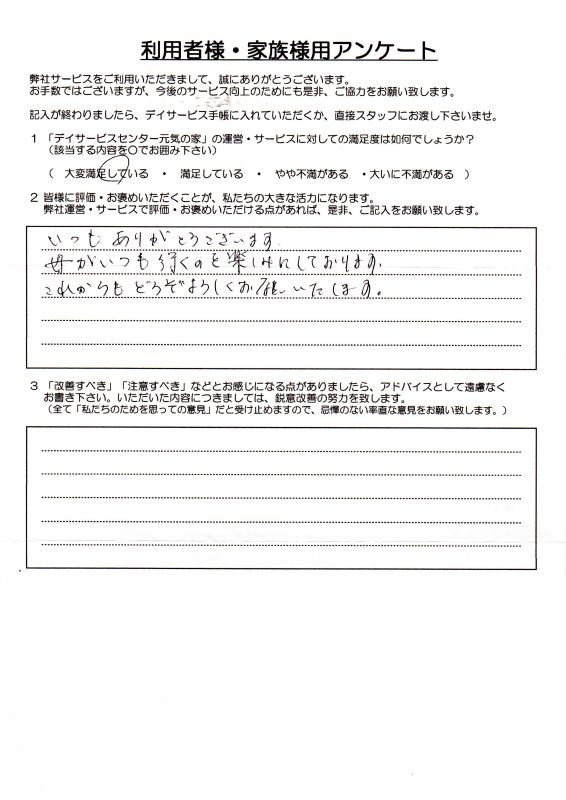 利用者様・家族様用アンケート
弊社サービスをご利用いただきまして、誠にありがとうございます。
お手数ではございますが、今後のサービス向上のためにも是非、ご協力をお願い致します。
記入が終わりましたら、デイサービス手帳に入れていただくか、直接スタッフにお渡し下さいませ。
1 「デイサービスセンター元気の家」の運営・サービスに対しての満足度は如何でしょうか?
(該当する内容を〇でお囲み下さい)
( 大変満足している ・ 満足している ・ やや不満がある ・大いに不満がある )
2 皆様に評価・お褒めいただくことが、私たちの大きな活力になります。
弊社運営・サービスで評価・お褒めいただける点があれば、是非、ご記入をお願い致します。
いつもありがとうございます。
母がいつも行くのを楽しみにしております。
これからもどうぞよろしくお願いいたします。
3 「改善すべき」「注意すべき」などとお感じになる点がありましたら、アドバイスとして遠慮なく
お書き下さい。いただいた内容につきましては、鋭意改善の努力を致します。
(全て「私たちのためを思っての意見」だと受け止めますので、忌憚のない率直な意見をお願い致します。)